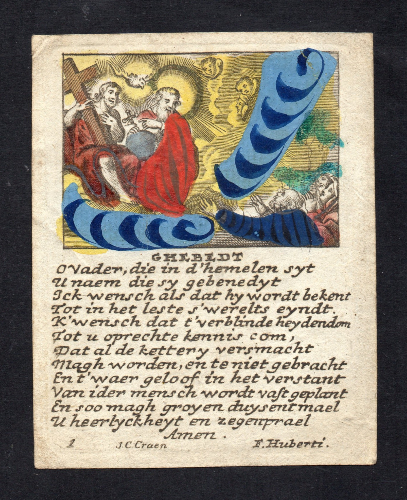 GHEBEDT
O Vader, die in d'hemelen syt
U naem die sy gebenedyt
Ick wensch als dat hy wordt bekent
Tot in het leste s'werelts eyndt.
K'wensch dat t'verblinde heydendom
Tot u oprechte kennis com,
Dat al de kettery versmacht
Magh worden, en te niet gebracht
En t'waer geloof in het verstant
Van ider mensch wordt vast geplant
En soo magh groyen duysent mael
U heerlyckheyt en zegenprael
Amen.
1 J.C. Craen F. Huberti.